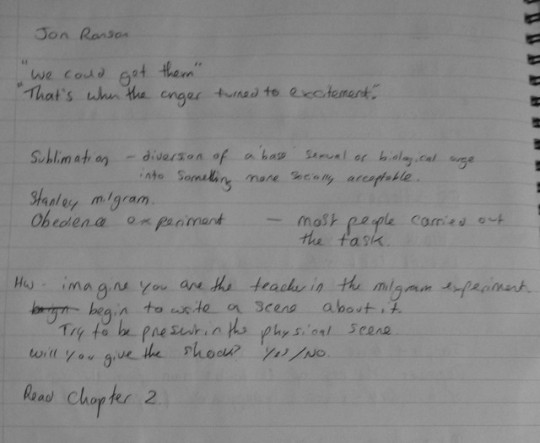 Jon Ronson
"We could get them"
"That's when the anger turned to excitement."
Sublimation - diversion of a base sexual or biological urge
into something more socially acceptable.
Stanley milgram.
Obedience experiment - most people carried out
the task.
Hw - imagine you are the teacher in the milgram experiment.
begin to write a scene about it.
Try to be present in the physical scene
will you give the shock? Yes/No.
Read Chapter 2